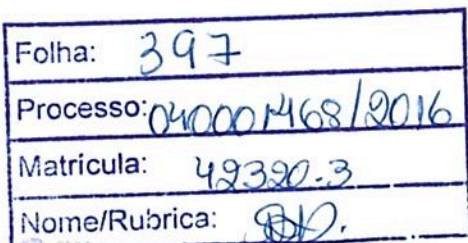 Folha: 397
Processo: 040001468/2016
Matricula: 42320.3
Nome/Rubrica: